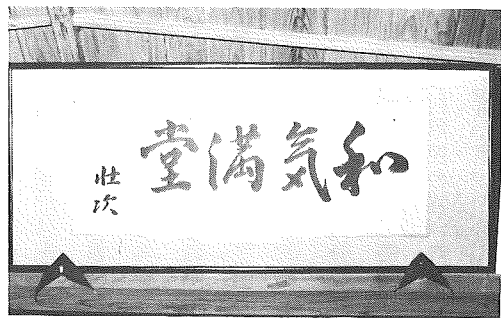 和気満堂
壮次